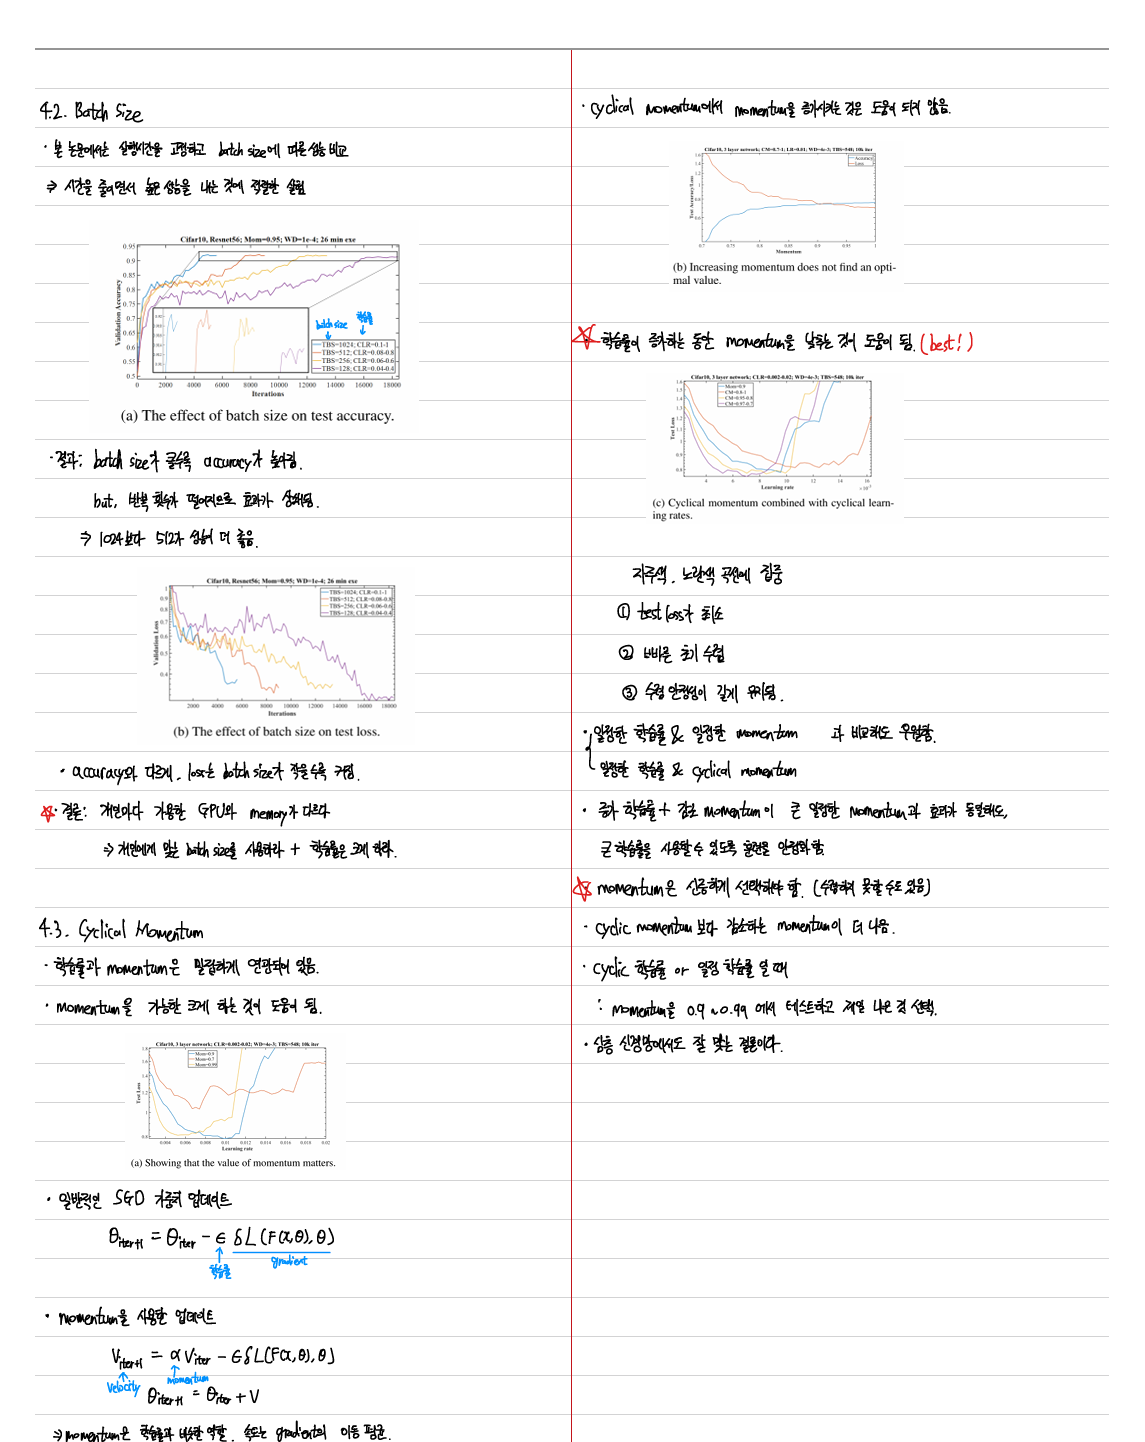 4.2. Batch Size
· 본 논문에서는 실행시간을 고정하고 batch size에 따른 성능 비교
⇒ 시간을 줄이면서 높은 성능을 내는 것에 적절한 실험
Cifar10, Resnet56; Mom=0.95; WD=1e-4; 26 min exe
Validation Accuracy
0.95
0.9
0.85
0.8
0.75
0.7
0.65
0.6
0.55
0.5
batch size
학습률
TBS=1024; CLR=0.1-1
TBS=512; CLR=0.08-0.8
TBS=256; CLR=0.06-0.6
TBS=128; CLR=0.04-0.4
0 2000 4000 6000 8000 10000 12000 14000 16000 18000
Iterations
(a) The effect of batch size on test accuracy.
· 결과: batch size가 클수록 accuracy가 높아짐.
but, 반복 횟수가 떨어지므로 효과가 상쇄됨.
⇒ 1024보다 512가 성능이 더 좋음.
Cifar10, Resnet56; Mom=0.95; WD=1e-4; 26 min exe
Validation Loss
1
0.9
0.8
0.7
0.6
0.5
0.4
TBS=1024, CLR=0.1-1
TBS=512, CLR=0.08-0.8
TBS=256, CLR=0.06-0.6
TBS=128, CLR=0.04-0.4
2000 4000 6000 8000 10000 12000 14000 16000 18000
Iterations
(b) The effect of batch size on test loss.
· accuracy와 다르게, loss는 batch size가 작을수록 커짐.
☆· 결론: 개인마다 가용한 GPU와 memory가 다르다
⇒ 개인에게 맞는 batch size를 사용하라 + 학습률은 크게 하라.
4.3. Cyclical Momentum
· 학습률과 momentum은 밀접하게 연관되어 있음.
· momentum을 가능한 크게 하는 것이 도움이 됨.
Cifar10, 3 layer network; CLR=0.002-0.02; WD=4e-3; TBS=548; 10k iter
Test Loss
1.8
1.6
1.4
1.2
1
0.8
Mom=0.9
Mom=0.7
Mom=0.99
0.004 0.006 0.008 0.01 0.012 0.014 0.016 0.018 0.02
Learning rate
(a) Showing that the value of momentum matters.
· 일반적인 SGD 가중치 업데이트
θiter+1 = θiter − ϵ δL(F(x,θ),θ)
학습률
gradient
· momentum을 사용한 업데이트
Viter+1 = αViter − ϵδL(F(x,θ),θ)
Velocity
momentum
θiter+1 = θiter + V
⇒ momentum은 학습률과 비슷한 역할. 속도는 gradient의 이동 평균.
· cyclical momentum에서 momentum을 증가시키는 것은 도움이 되지 않음.
Cifar10, 3 layer network, CM=0.7-1; LR=0.01; WD=4e-3; TBS=548; 10k iter
Test Accuracy/Loss
Accuracy
Loss
0.7 0.75 0.8 0.85 0.9 0.95 1
Momentum
(b) Increasing momentum does not find an opti-
mal value.
☆ 학습률이 증가하는 동안 momentum을 낮추는 것이 도움이 됨. (best!)
Cifar10, 3 layer network, CLR=0.002-0.02; WD=4e-3; TBS=548; 10k iter
Test Loss
1.6
1.5
1.4
1.3
1.2
1.1
1
0.9
0.8
Mom=0.9
CM=0.8-1
CM=0.95-0.8
CM=0.97-0.7
4 6 8 10 12 14 16
Learning rate
(c) Cyclical momentum combined with cyclical learn-
ing rates.
자주색, 노란색 곡선에 집중
① test loss가 최소
② 빠른 초기 수렴
③ 수렴 안정성이 길게 유지됨.
· 일정한 학습률 & 일정한 momentum 과 비교해도 우월함.
일정한 학습률 & cyclical momentum
· 증가 학습률 + 감소 momentum이 큰 일정한 momentum과 효과가 동일해도,
큰 학습률을 사용할 수 있도록 훈련을 안정화 함.
☆ momentum은 신중하게 선택해야 함. (수렴하지 못할 수도 있음)
· cyclic momentum 보다 감소하는 momentum이 더 나음.
· cyclic 학습률 or 일정 학습률 일 때
: momentum을 0.9 ~ 0.99 에서 테스트하고 제일 나은 것 선택.
· 심층 신경망에서도 잘 맞는 결론이다.